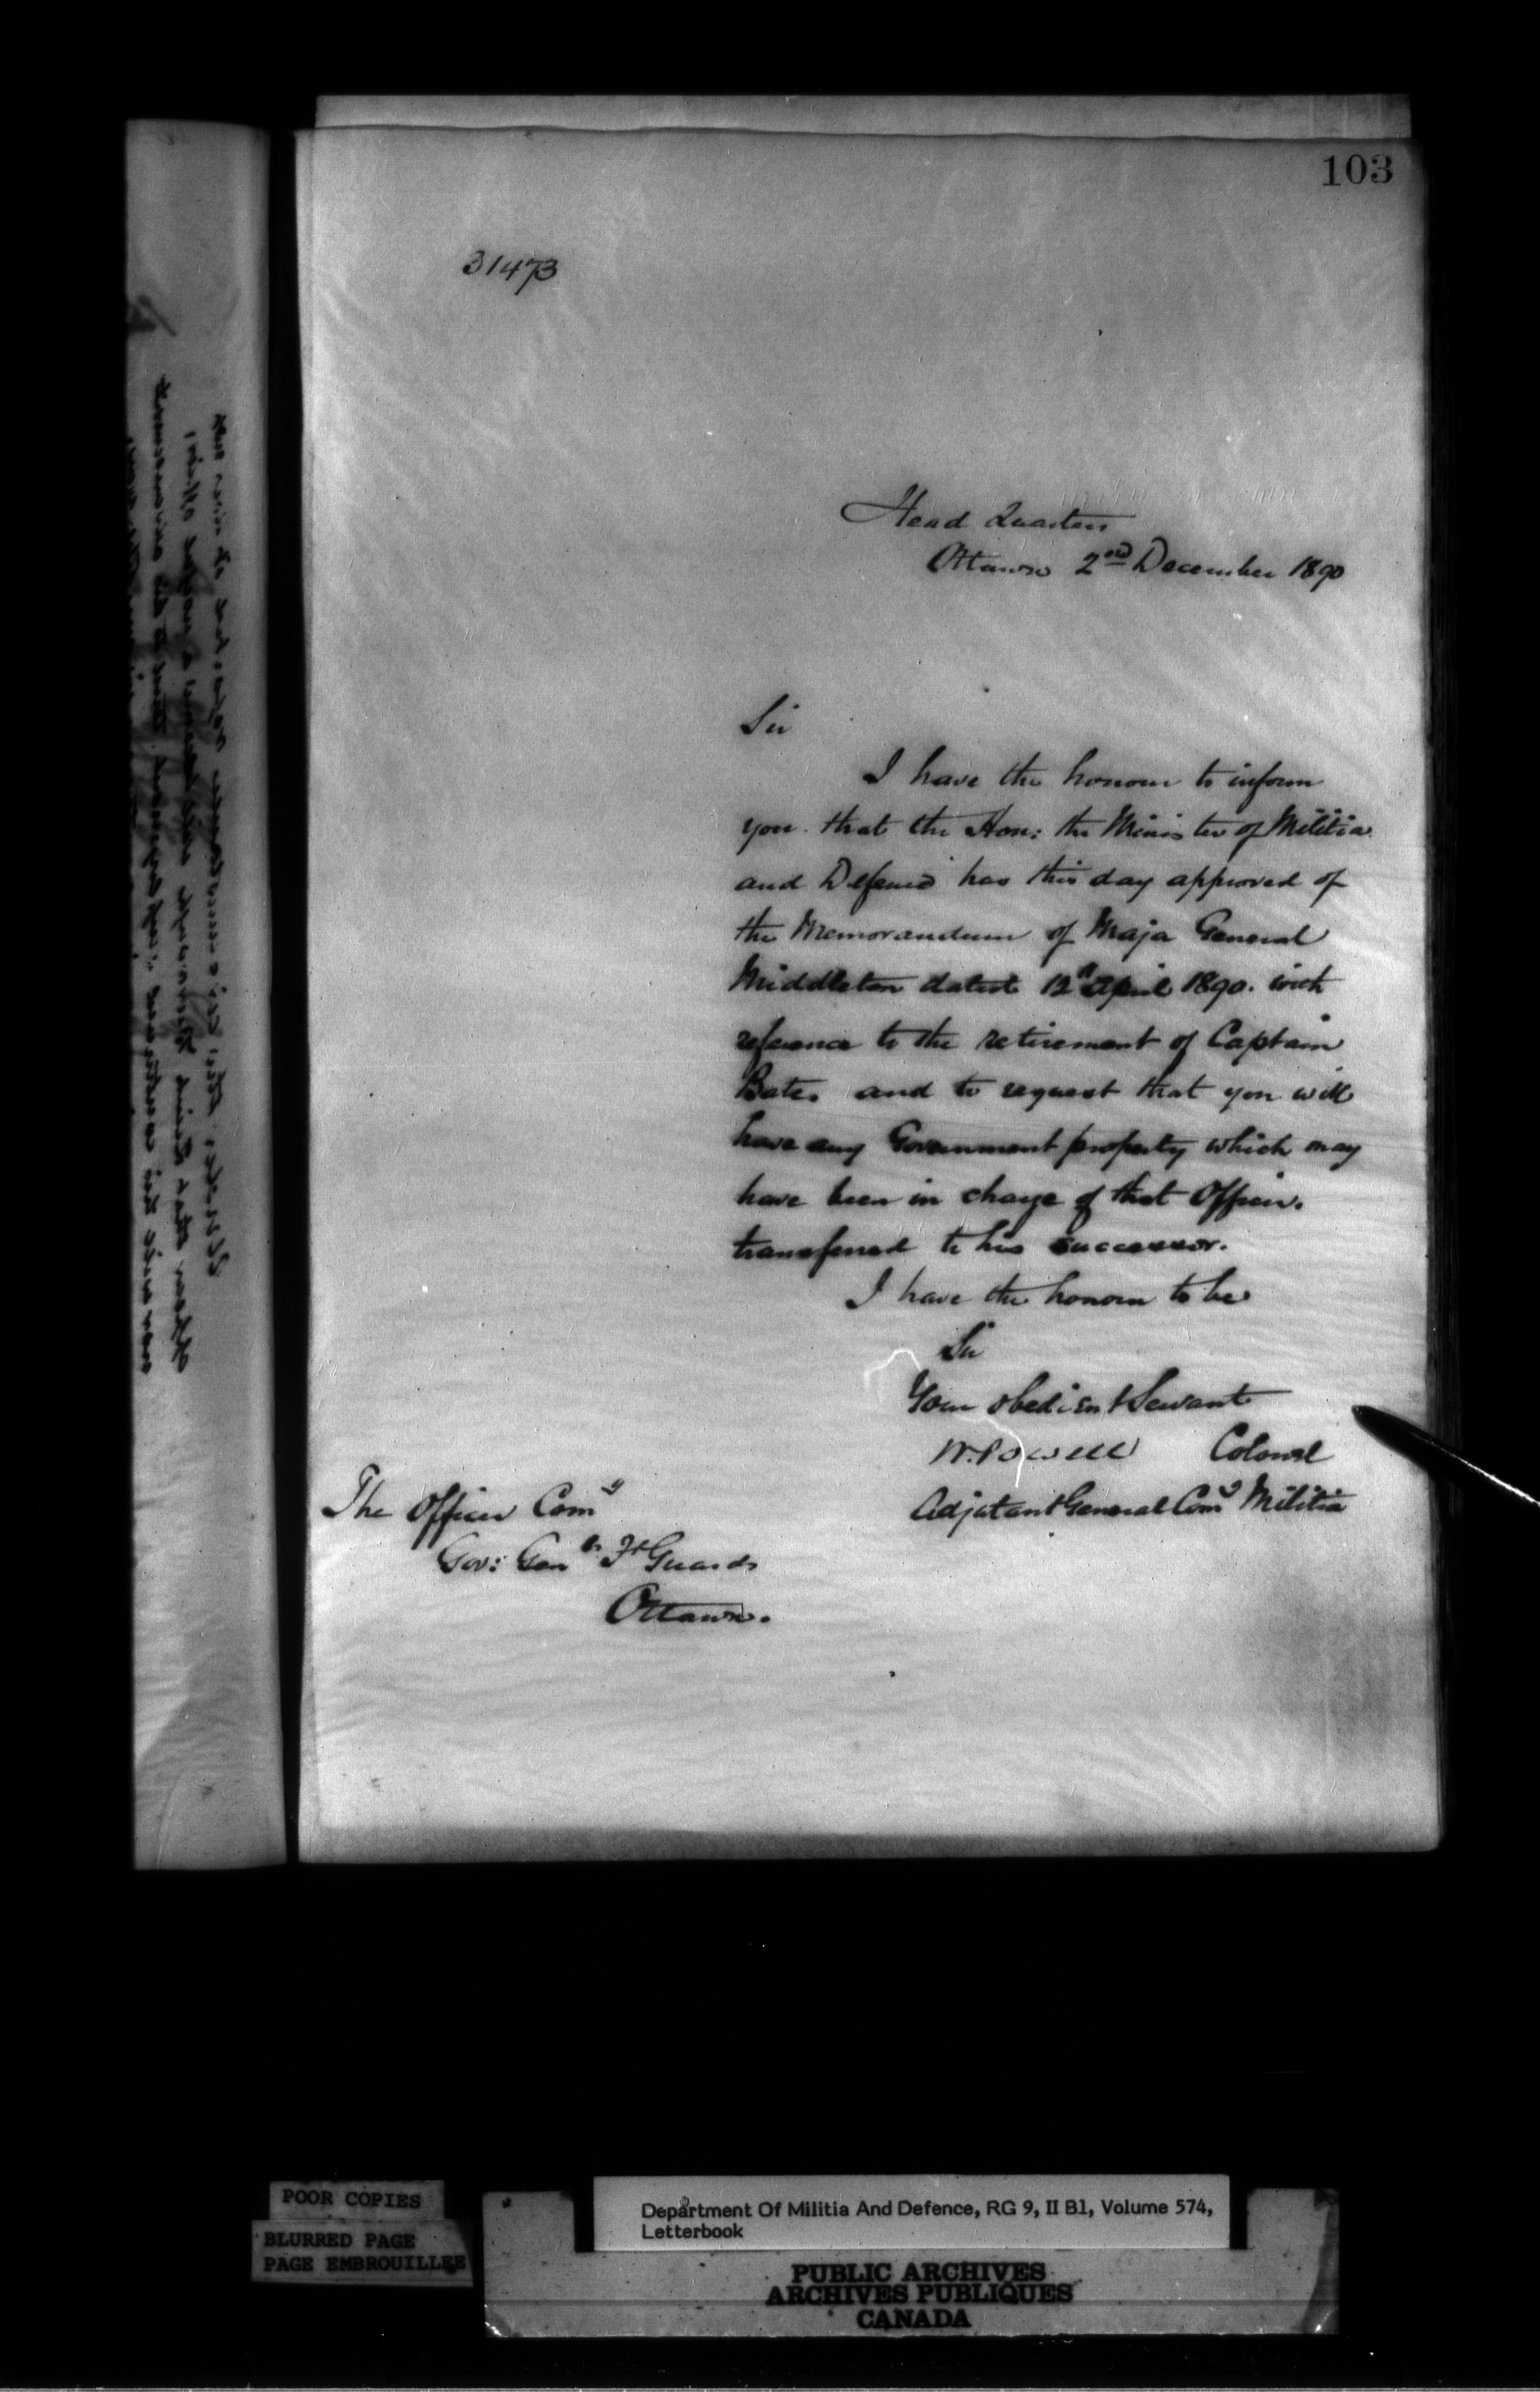 103
31473
Head Quarters
Ottawa 2nd December 1890
Sir
I have the honour to inform
you that the Hon: the Minister of Militia
and Defence has this day approved of
the Memorandum of Major General
Middleton dated 12th April 1890. with
reference to the retirement of Captain
Bate. and to request that you will
have any Government property which may
have been in charge of that Officer.
transferred to his successor.
I have the honour to be
Sir
Your obedient Servant
W. Powell Colonel
Adjutant General Comg Militia
The Officer Comg
Gov: Genls Ft Guards
Ottawa.
POOR COPIES
BLURRED PAGE
PAGE EMBROUILLEE
Department Of Militia And Defence, RG 9, II B1, Volume 574,
Letterbook
PUBLIC ARCHIVES
ARCHIVES PUBLIQUES
CANADA